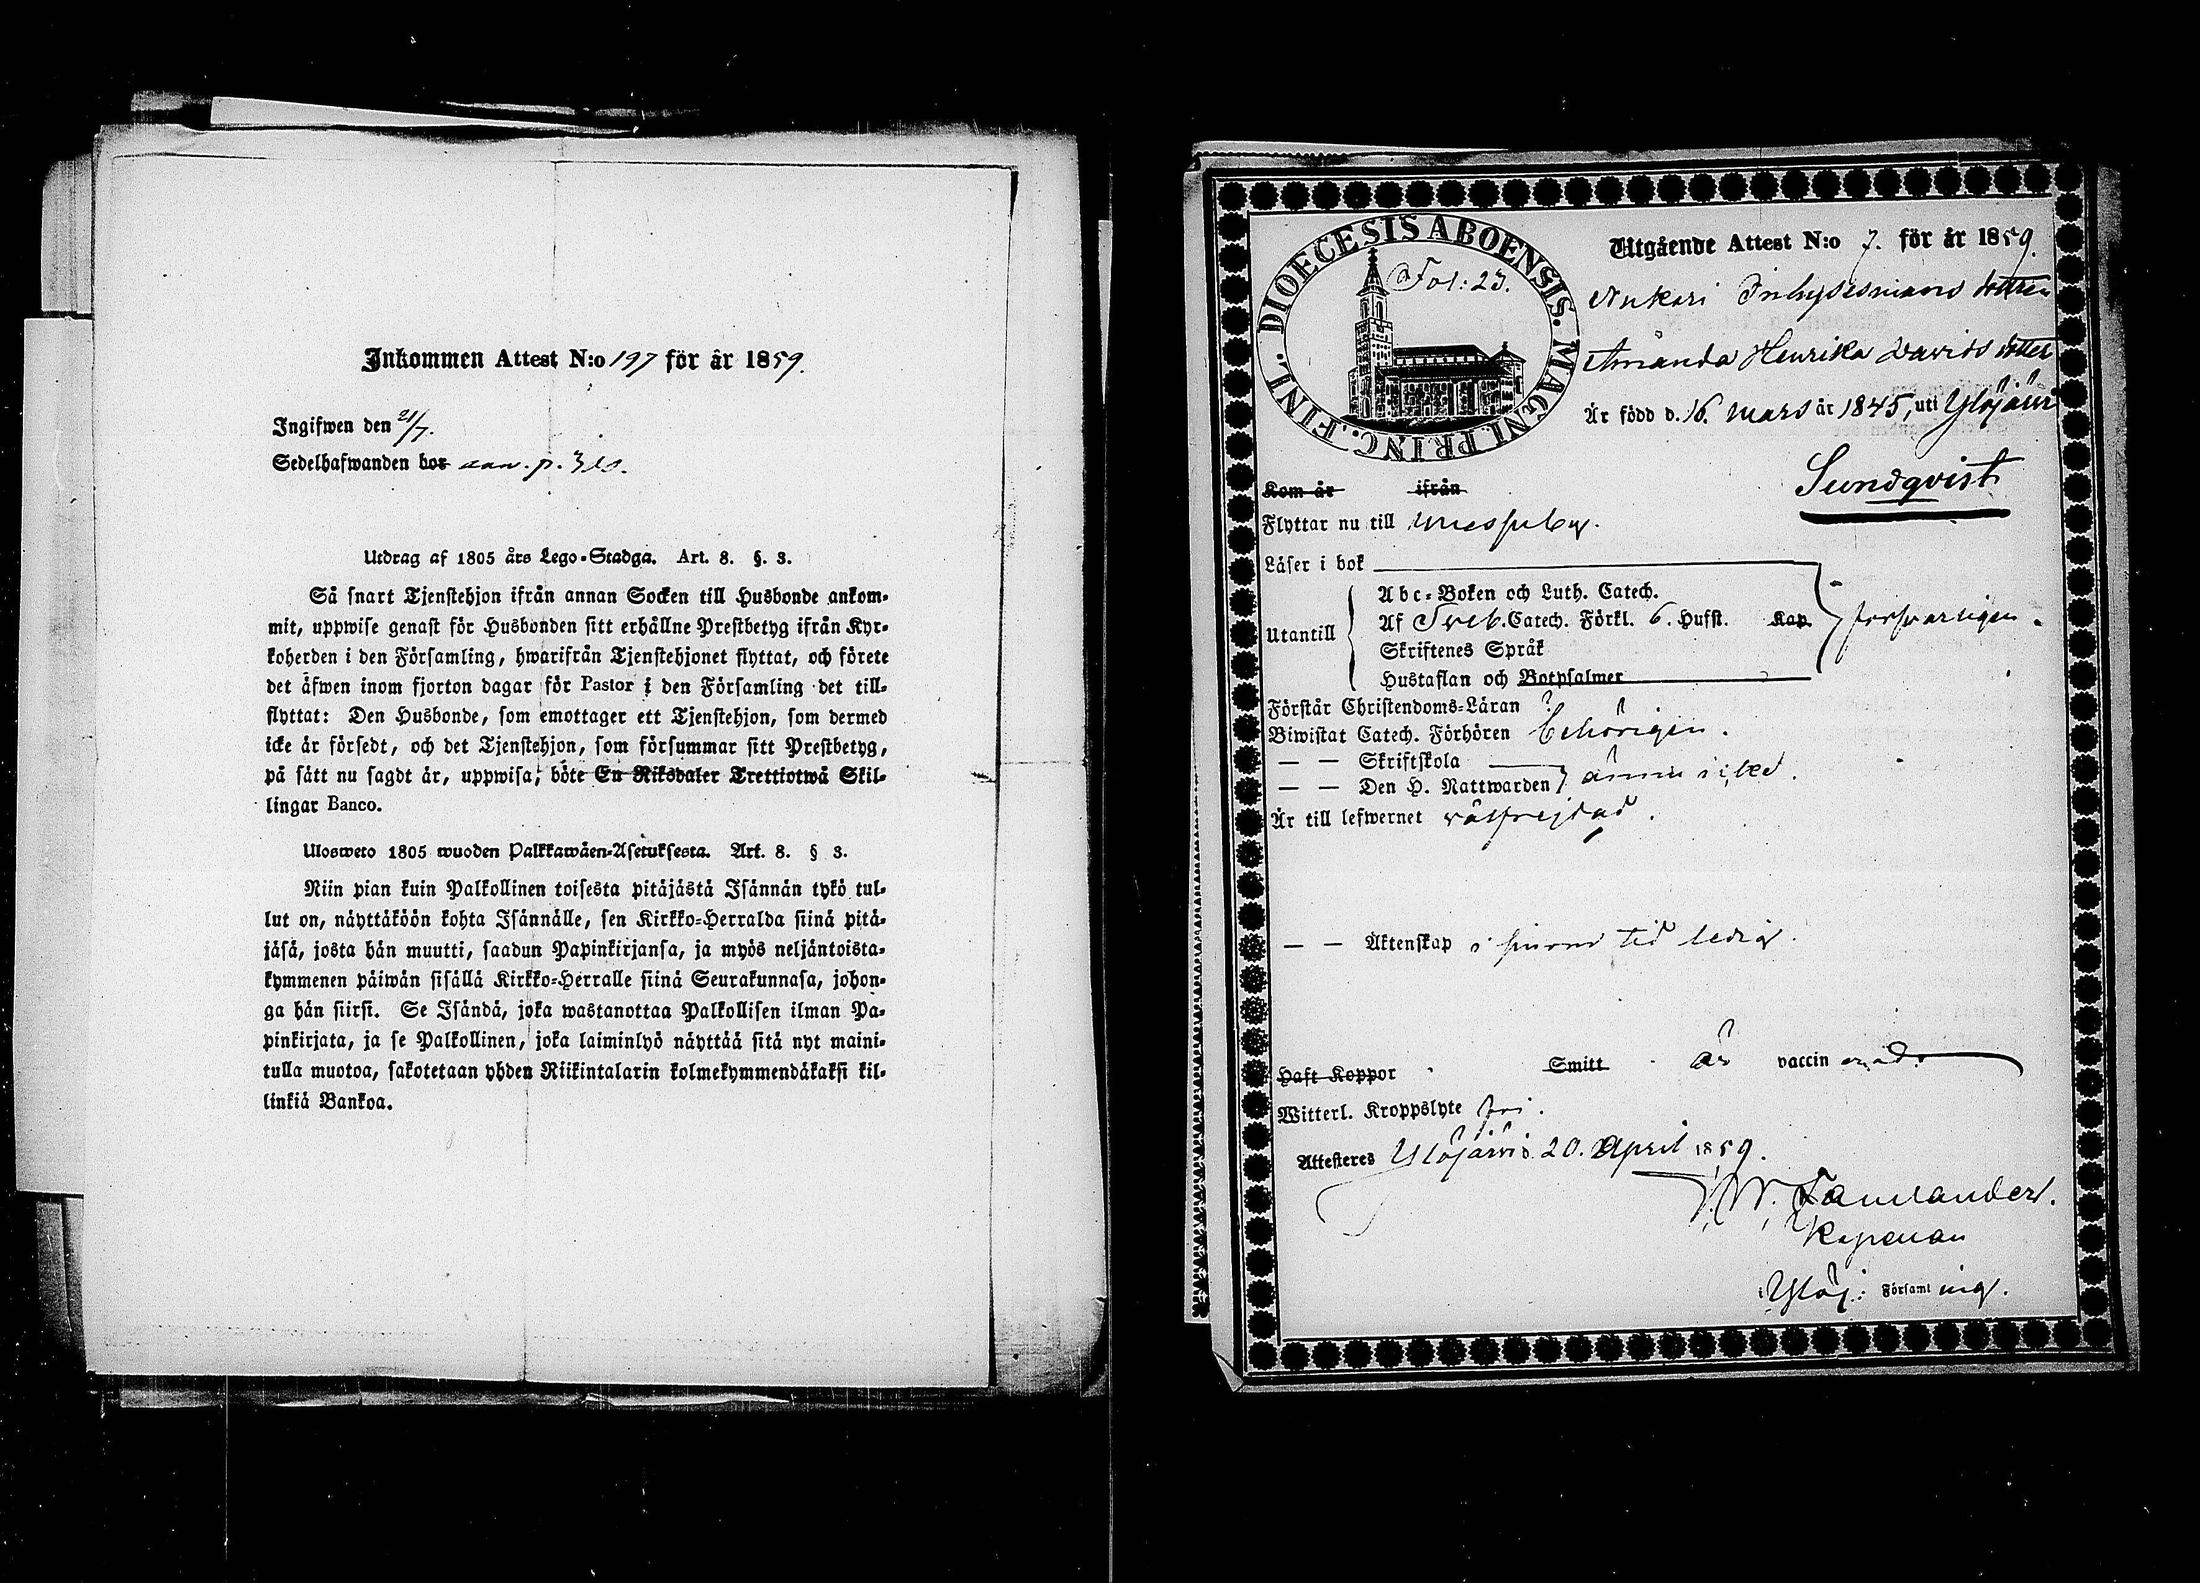 Inkommen Attest N:o 197 för år 1859.
Ingifwen den 21/7.
Sedelhafwanden bor can. p.
Utdrag af 1805 års Lego-Stadga. Art. 8. §. 3.
Så snart Tjenstehjon ifrån annan Socken till Husbonde ankom-
mit, uppwise genast för Husbonden sitt erhållne Prestbetyg ifrån Kyr-
koherden i den Församling, hwarifrån Tjenstehjonet flyttat, och förete
det äfwen inom fjorton dagar för Pastor i den Församling det till-
flyttat: Den Husbonde, som emottager ett Tjenstehjon, som dermed
icke är försedt, och det Tjenstehjon, som försummar sitt Prestbetyg,
på sätt nu sagdt är, uppwisa, böte En Riksdaler Trettiotwå Skil-
lingar Banco.
Ulosweto 1805 wuoden Palkkawäen-Asetuksesta. Art. 8. § 3.
Niin pian kuin Palkollinen toisesta pitäjästä Isännän tykö tul-
lut on, näyttäköön kohta Isännälle, sen Kirkko-Herralda siinä pitä-
jäsä, josta hän muutti, saadun Papinkirjansa, ja myös neljäntoista-
kymmenen päiwän sisällä Kirkko-Herralle siinä Seurakunnasa, johon-
ga hän siirsi. Se Isändä, joka wastanottaa Palkollisen ilman Pa-
pinkirjata, ja se Palkollinen, joka laiminlyö näyttää sitä nyt maini-
tulla muotoa, sakotetaan yhden Riikintalarin kolmekymmendäkaksi kil-
linkiä Bankoa.
DIOECESIS ABOENSIS. MAGNI. PRINC. FINL.
Fol: 23.
Utgående Attest N:o 7. för år 1859.
Inhysesmans dottren
Amanda Henrika Davids dotter
Är född d. 16. Mars år 1845, uti Ylöjärvi
Sundqvist
Kom år ifrån
Flyttar nu till Messuby.
Läser i bok
Utantill
Abc-Boken och Luth. Catech.
Af Sveb. Catech. Förkl. 6. Hufst. Kap.
Skriftenes Språk
Hustaflan och Botpsalmer
försvarligen.
Förstår Christendoms-Läran
Biwistat Catech. Förhören behörigen.
— — Skriftskola
— — Den H. Nattwarden
ännu icke.
Är till lefwernet välfrejdad.
— — Äktenskap i sinom tid ledig.
Haft Koppor Smitt är vaccinerad.
Witterl. Kroppslyte fri.
Attesteres Ylöjärvi d. 20. April 1859.
Kapellan
Ylöj: Församling.